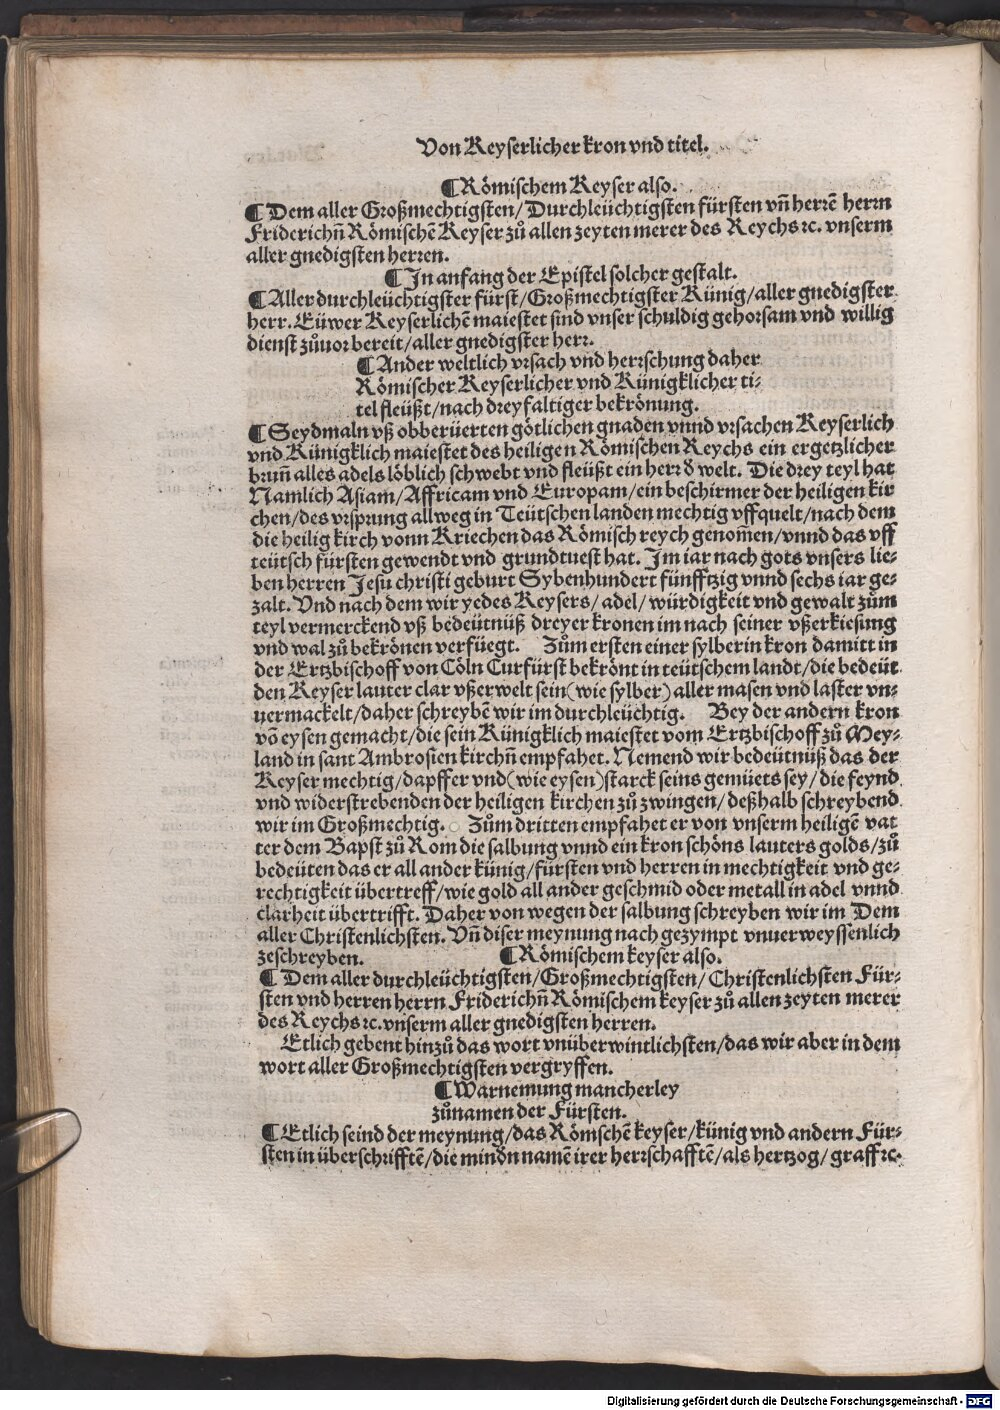 Von Keyserlicher kron vnd titel.
¶Römischem Keyser also.
¶Dem aller Großmechtigsten/Durchleüchtigsten fürsten vn̄ herrē herrn
Friderichn̄ Römischē Keyser zů allen zeyten merer des Reychs ꝛc. vnserm
aller gnedigsten herren.
¶In anfang der Epistel solcher gestalt.
¶Aller durchleüchtigster fürst/Großmechtigster Künig/aller gnedigster
herr. Eüwer Keyserlichē maiestet sind vnser schuldig gehorsam vnd willig
dienst zůuor bereit/aller gnedigster herr.
¶Ander weltlich vrsach vnd herrschung daher
Römischer Keyserlicher vnd Künigklicher ti⸗
tel fleüßt/nach dreyfaltiger bekrönung.
¶Seydmaln vß obberüerten götlichen gnaden vnnd vrsachen Keyserlich
vnd Künigklich maiestet des heiligen Römischen Reychs ein ergetzlicher
brun̄ alles adels löblich schwebt vnd fleüßt ein herr d̕ welt. Die drey teyl hat
Namlich Asiam/Affricam vnd Europam/ein beschirmer der heiligen kir
chen/des vrsprung allweg in Teütschen landen mechtig vffquelt/nach dem
die heilig kirch vonn Kriechen das Römisch reych genom̄en/vnnd das vff
teütsch fürsten gewendt vnd grundtuest hat. Im iar nach gots vnsers lie⸗
ben herren Jesu christi geburt Sybenhundert fünfftzig vnnd sechs iar ge⸗
zalt. Vnd nach dem wir yedes Keysers/adel/würdigkeit vnd gewalt zům
teyl vermerckend vß bedeütnüß dreyer kronen im nach seiner vßerkiesung
vnd wal zů bekrönen verfüegt. Zům ersten einer sylberin kron damitt in
der Ertzbischoff von Cöln Curfürst bekrönt in teütschem landt/die bedeüt
den Keyser lauter clar vßerwelt sein(wie sylber) aller masen vnd laster vn⸗
uermackelt/daher schreybē wir im durchleüchtig. Bey der andern kron
vō eysen gemacht/die sein Künigklich maiestet vom Ertzbischoff zů Mey⸗
land in sant Ambrosien kirchn̄ empfahet. Nemend wir bedeütnüß das der
Keyser mechtig/dapffer vnd(wie eysen)starck seins gemüets sey/die feynd
vnd widerstrebenden der heiligen kirchen zů zwingen/deßhalb schreybend
wir im Großmechtig. Zům dritten empfahet er von vnserm heiligē vat
ter dem Bapst zů Rom die salbung vnnd ein kron schöns lauters golds/zů
bedeüten das er all ander künig/fürsten vnd herren in mechtigkeit vnd ge⸗
rechtigkeit übertreff/wie gold all ander geschmid oder metall in adel vnnd
clarheit übertrifft. Daher von wegen der salbung schreyben wir im Dem
aller Christenlichsten. Vn̄ diser meynung nach gezympt vnuerweyssenlich
zeschreyben. ¶Römischem keyser also.
¶Dem aller durchleüchtigsten/Großmechtigsten/Christenlichsten Für⸗
sten vnd herren herrn Friderichn̄ Römischem keyser zů allen zeyten merer
des Reychs ꝛc. vnserm aller gnedigsten herren.
Etlich gebent hinzů das wort vnüberwintlichsten/das wir aber in dem
wort aller Großmechtigsten vergryffen.
¶Warnemung mancherley
zůnamen der Fürsten.
¶Etlich seind der meynung/das Römschē keyser/künig vnd andern Für⸗
sten in überschrifftē/die mind̕n namē irer herrschafftē/als hertzog/graff ꝛc.
Digitalisierung gefördert durch die Deutsche Forschungsgemeinschaft - DFG